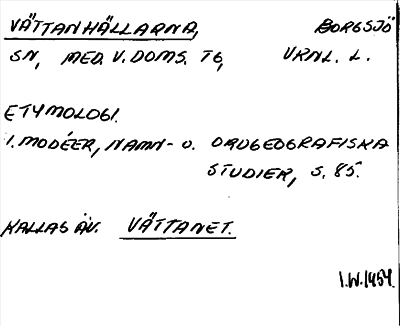 VÄTTANHÄLLARNA, BORGSJÖ
SN, MED. V. DOMS. TG, VRNL. L.
ETYMOLOGI.
I. MODÉER, NAMN- O. ORDGEOGRAFISKA
STUDIER, S. 85.
KALLAS ÄV. VÄTTANET.
I.W. 1954.